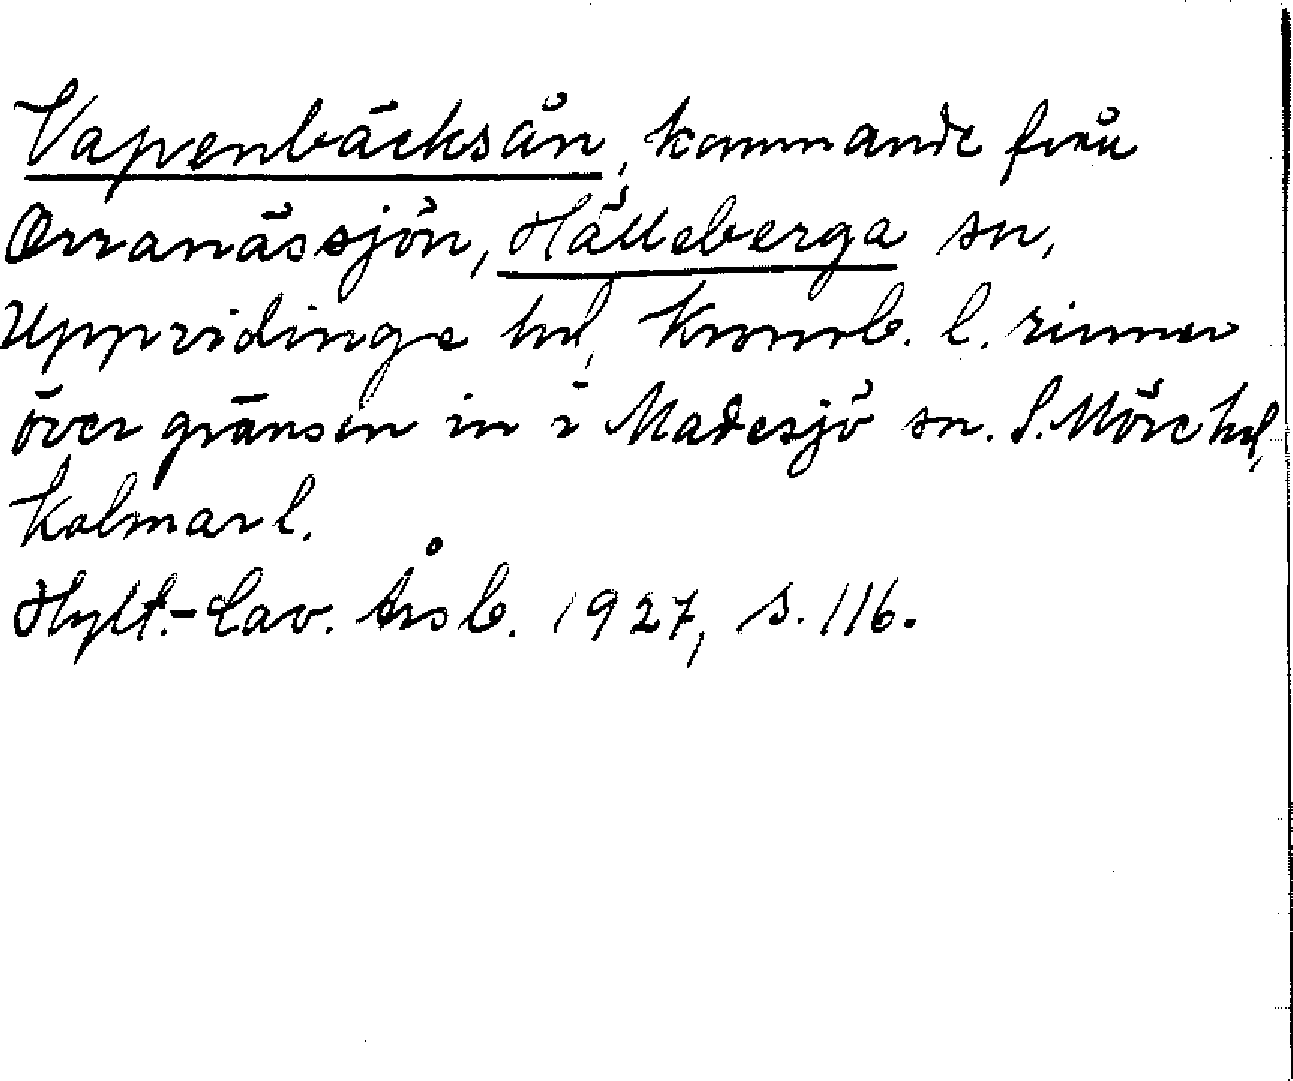 Vapenbäcksån, kommande från
Orranässjön, Hälleberga sn,
Uppvidinge hd, Kronob. l. rinner
över gränsen in i Madesjö sn. S. Möre hd,
Kalmar l.
Hylt.-Cav. Årsb. 1927, s. 116.